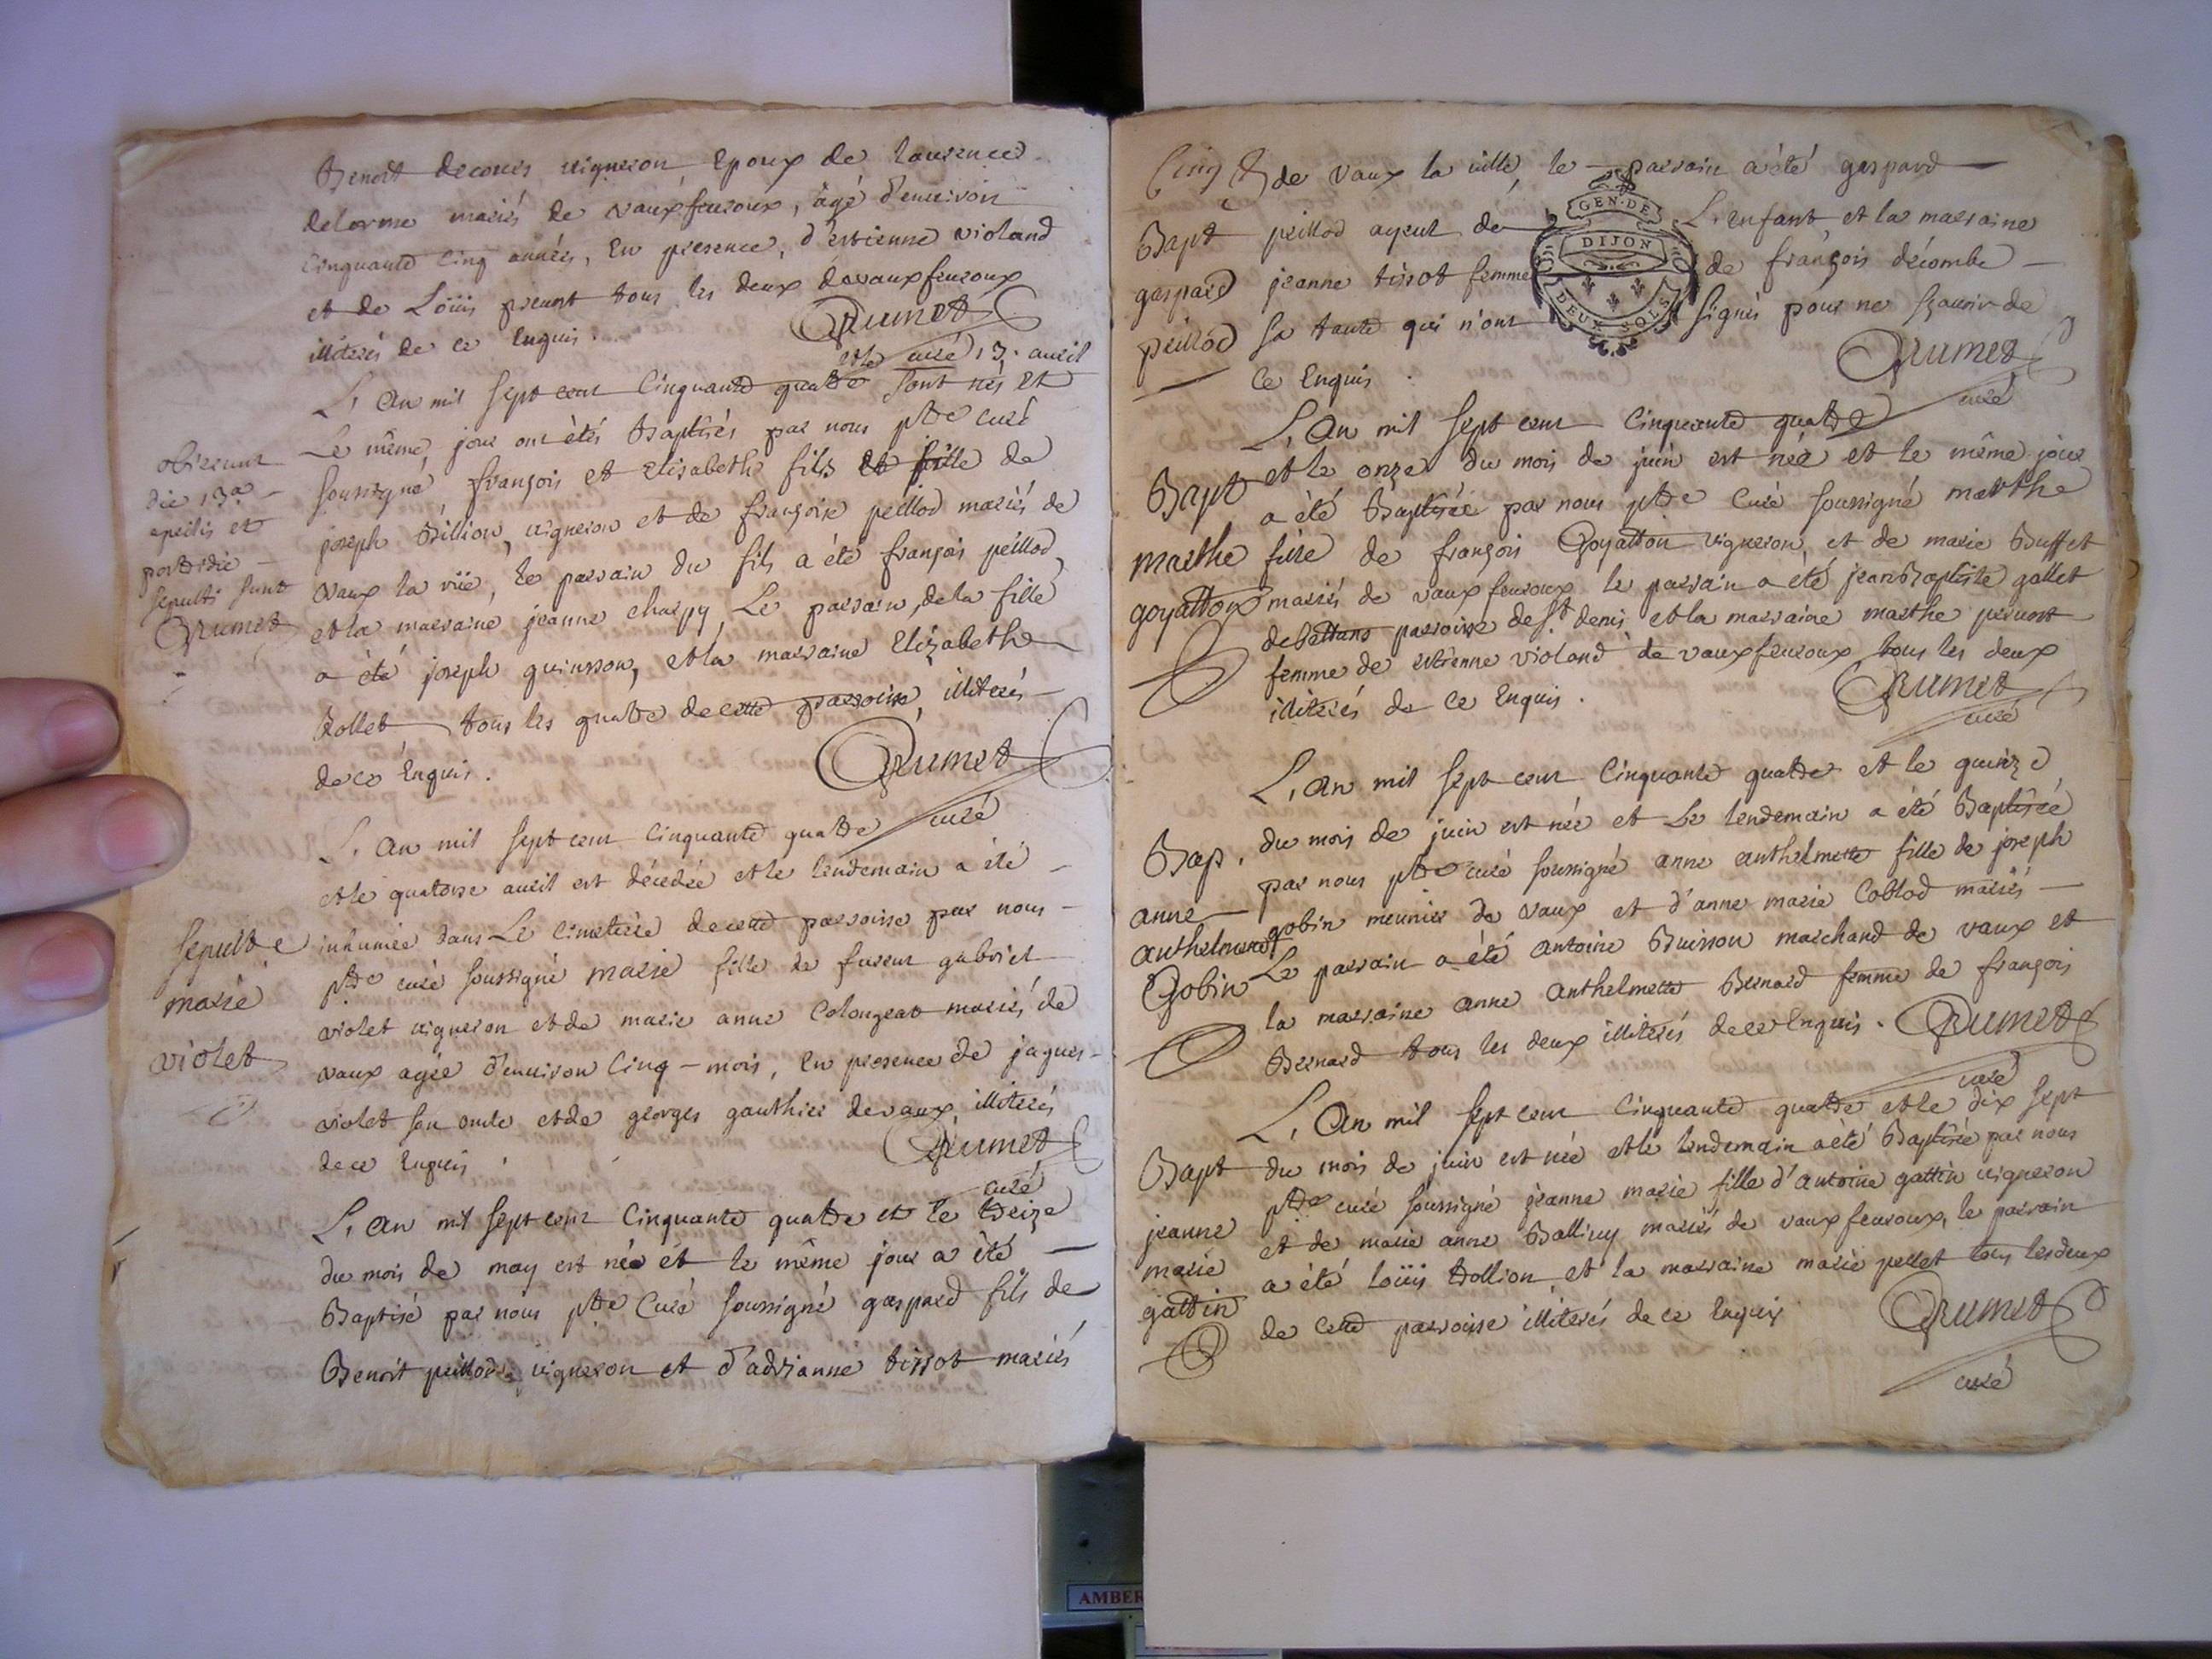 Benoît decours vigneron, Epoux de laurence
delorme mariés de vauxfeuroux, âgé d'environ
cinquante cinq années, en presence, d'estienne violand
et de Loüis pernot tous les deux devauxfeuroux
illiterés de ce enquis.
Rumet
curé
L'an mil sept cent cinquante quatre et le 13. avril sont nés et
Le même jour ont étés Baptisés par nous ptre curé
soussigné, françois et Elisabeth fils et fille de
joseph Billion, vigneron et de françoise peillod mariés de
vaux la vile, le parrain du fils a été françois peillod,
et la marraine jeanne charpy, Le parrain, de la fille
a été joseph guinsson, et la marraine Elizabeth
Rollet tous les quatre decette parroisse, illiterés
dece enquis.
Rumet
curé
obierunt
die 13a
aprilis et
postridie
sepulti sunt
Rumet
L'an mil sept cent cinquante quatre
et le quatorse avril est décedée et le lendemain a été
inhumée dans Le Cimetiere decette parroisse par nous
ptre curé soussigné marie fille de fureur gabriel
violet vigneron et de marie anne Colongeat mariés de
vaux agée d'environ cinq mois, en presence de jaques
violet son oncle et de georges gauthier devaux illiterés
de ce enquis.
Rumet
curé
sepultre
marie
violet
L'an mil sept cent cinquante quatre et le treize
du mois de may est né et le même jour a été
Baptisé par nous ptre Curé soussigné gaspard fils de
Benoit peillod vigneron et d'adrianne tissot mariés
Cinq
de vaux la ville, le parrain a été gaspard
peillod ayeul de L'enfant, et la marraine
jeanne tissot femme de françois décombe
sa tante qui n'ont signés pour ne sçavoir de
ce enquis.
Rumet
curé
GEN·DE
DIJON
DEUX SOLS
Bapt
gaspard
peillod
L'An mil sept cent cinquante quatre
et le onze du mois de juin est née et le même jour
a été Baptisée par nous ptre Curé soussigné marthe
fille de françois Goyatton vigneron, et de marie Buffet
mariés de vauxfeuroux, le parrain a été jeanBaptiste gallet
deBettans parroisse de St. denis et la marraine marthe pernot
femme de estienne violand de vauxfeuroux tous les deux
illiterés de ce enquis.
Rumet
curé
Bapt
marthe
goyatton
L'an mil sept cent cinquante quatre et le quinze
du mois de juin est née et Le lendemain a été Baptisée
par nous ptre curé soussigné anne anthelmette fille de joseph
gobin meunier de vaux et d'anne marie Coblod mariés
Le parrain a été antoine Buisson marchand de vaux et
la marraine anne anthelmette Bernard femme de françois
Bernard tous les deux illiterés dece enquis.
Rumet
curé
Bap.
anne
anthelmette
Gobin
L'An mil sept cent cinquante quatre et le dix sept
du mois de juin est née et le lendemain a été Baptisée par nous
ptre curé soussigné jeanne marie fille d'antoine gattin vigneron
et de marie anne Ballivy mariés de vauxfeuroux, le parrain
a été loüis trollion et la marraine marie pellet tous lesdeux
de cette parroisse illiterés de ce enquis
Rumet
curé
Bapt
jeanne
marie
gattin
AMBER